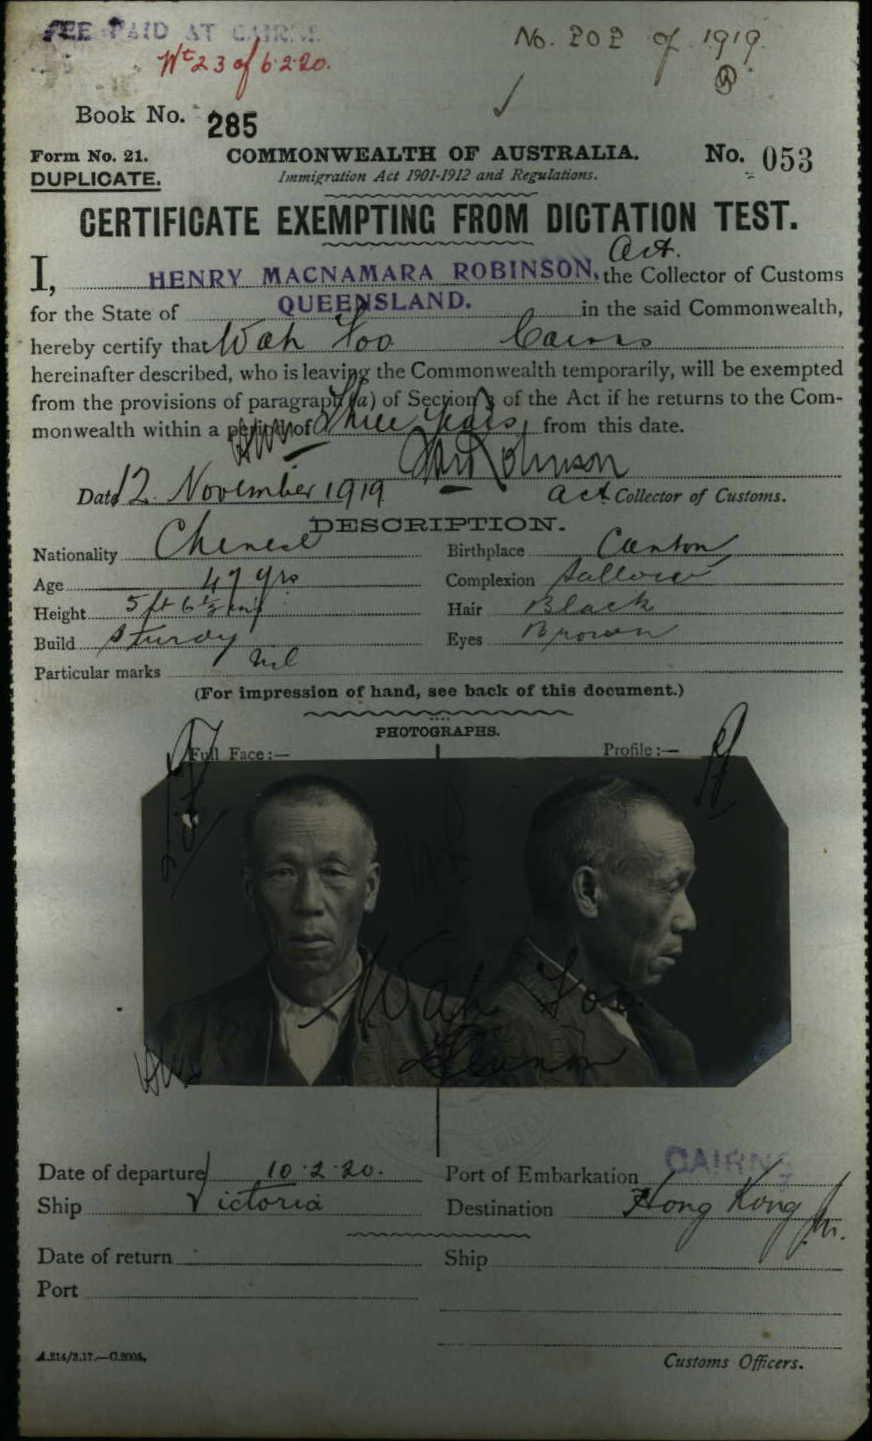 FEE PAID AT CAIRNS
No. 202 of 1919
Wt 23 of 6.2.20.
Book No. 285
Form No. 21. COMMONWEALTH OF AUSTRALIA. No. 053
DUPLICATE. Immigration Act 1901-1912 and Regulations.
CERTIFICATE EXEMPTING FROM DICTATION TEST.
Act.
I, HENRY MACNAMARA ROBINSON, the Collector of Customs
for the State of QUEENSLAND. in the said Commonwealth,
hereby certify that Wah Foo Cairns
hereinafter described, who is leaving the Commonwealth temporarily, will be exempted
from the provisions of paragraph (a) of Section 3 of the Act if he returns to the Com-
monwealth within a period of Three Years from this date.
Date 12 November 1919 Act Collector of Customs.
DESCRIPTION.
Nationality Chinese Birthplace Canton
Age 47 yrs Complexion Sallow
Height 5 ft 6½ ins Hair Black
Build Sturdy Eyes Brown
Particular marks nil
(For impression of hand, see back of this document.)
PHOTOGRAPHS.
Full Face:— Profile:—
Wah Foo
Date of departure 10.2.20. Port of Embarkation CAIRNS
Ship Victoria Destination Hong Kong
Date of return Ship
Port
A.214/3.17.—C.2005.
Customs Officers.